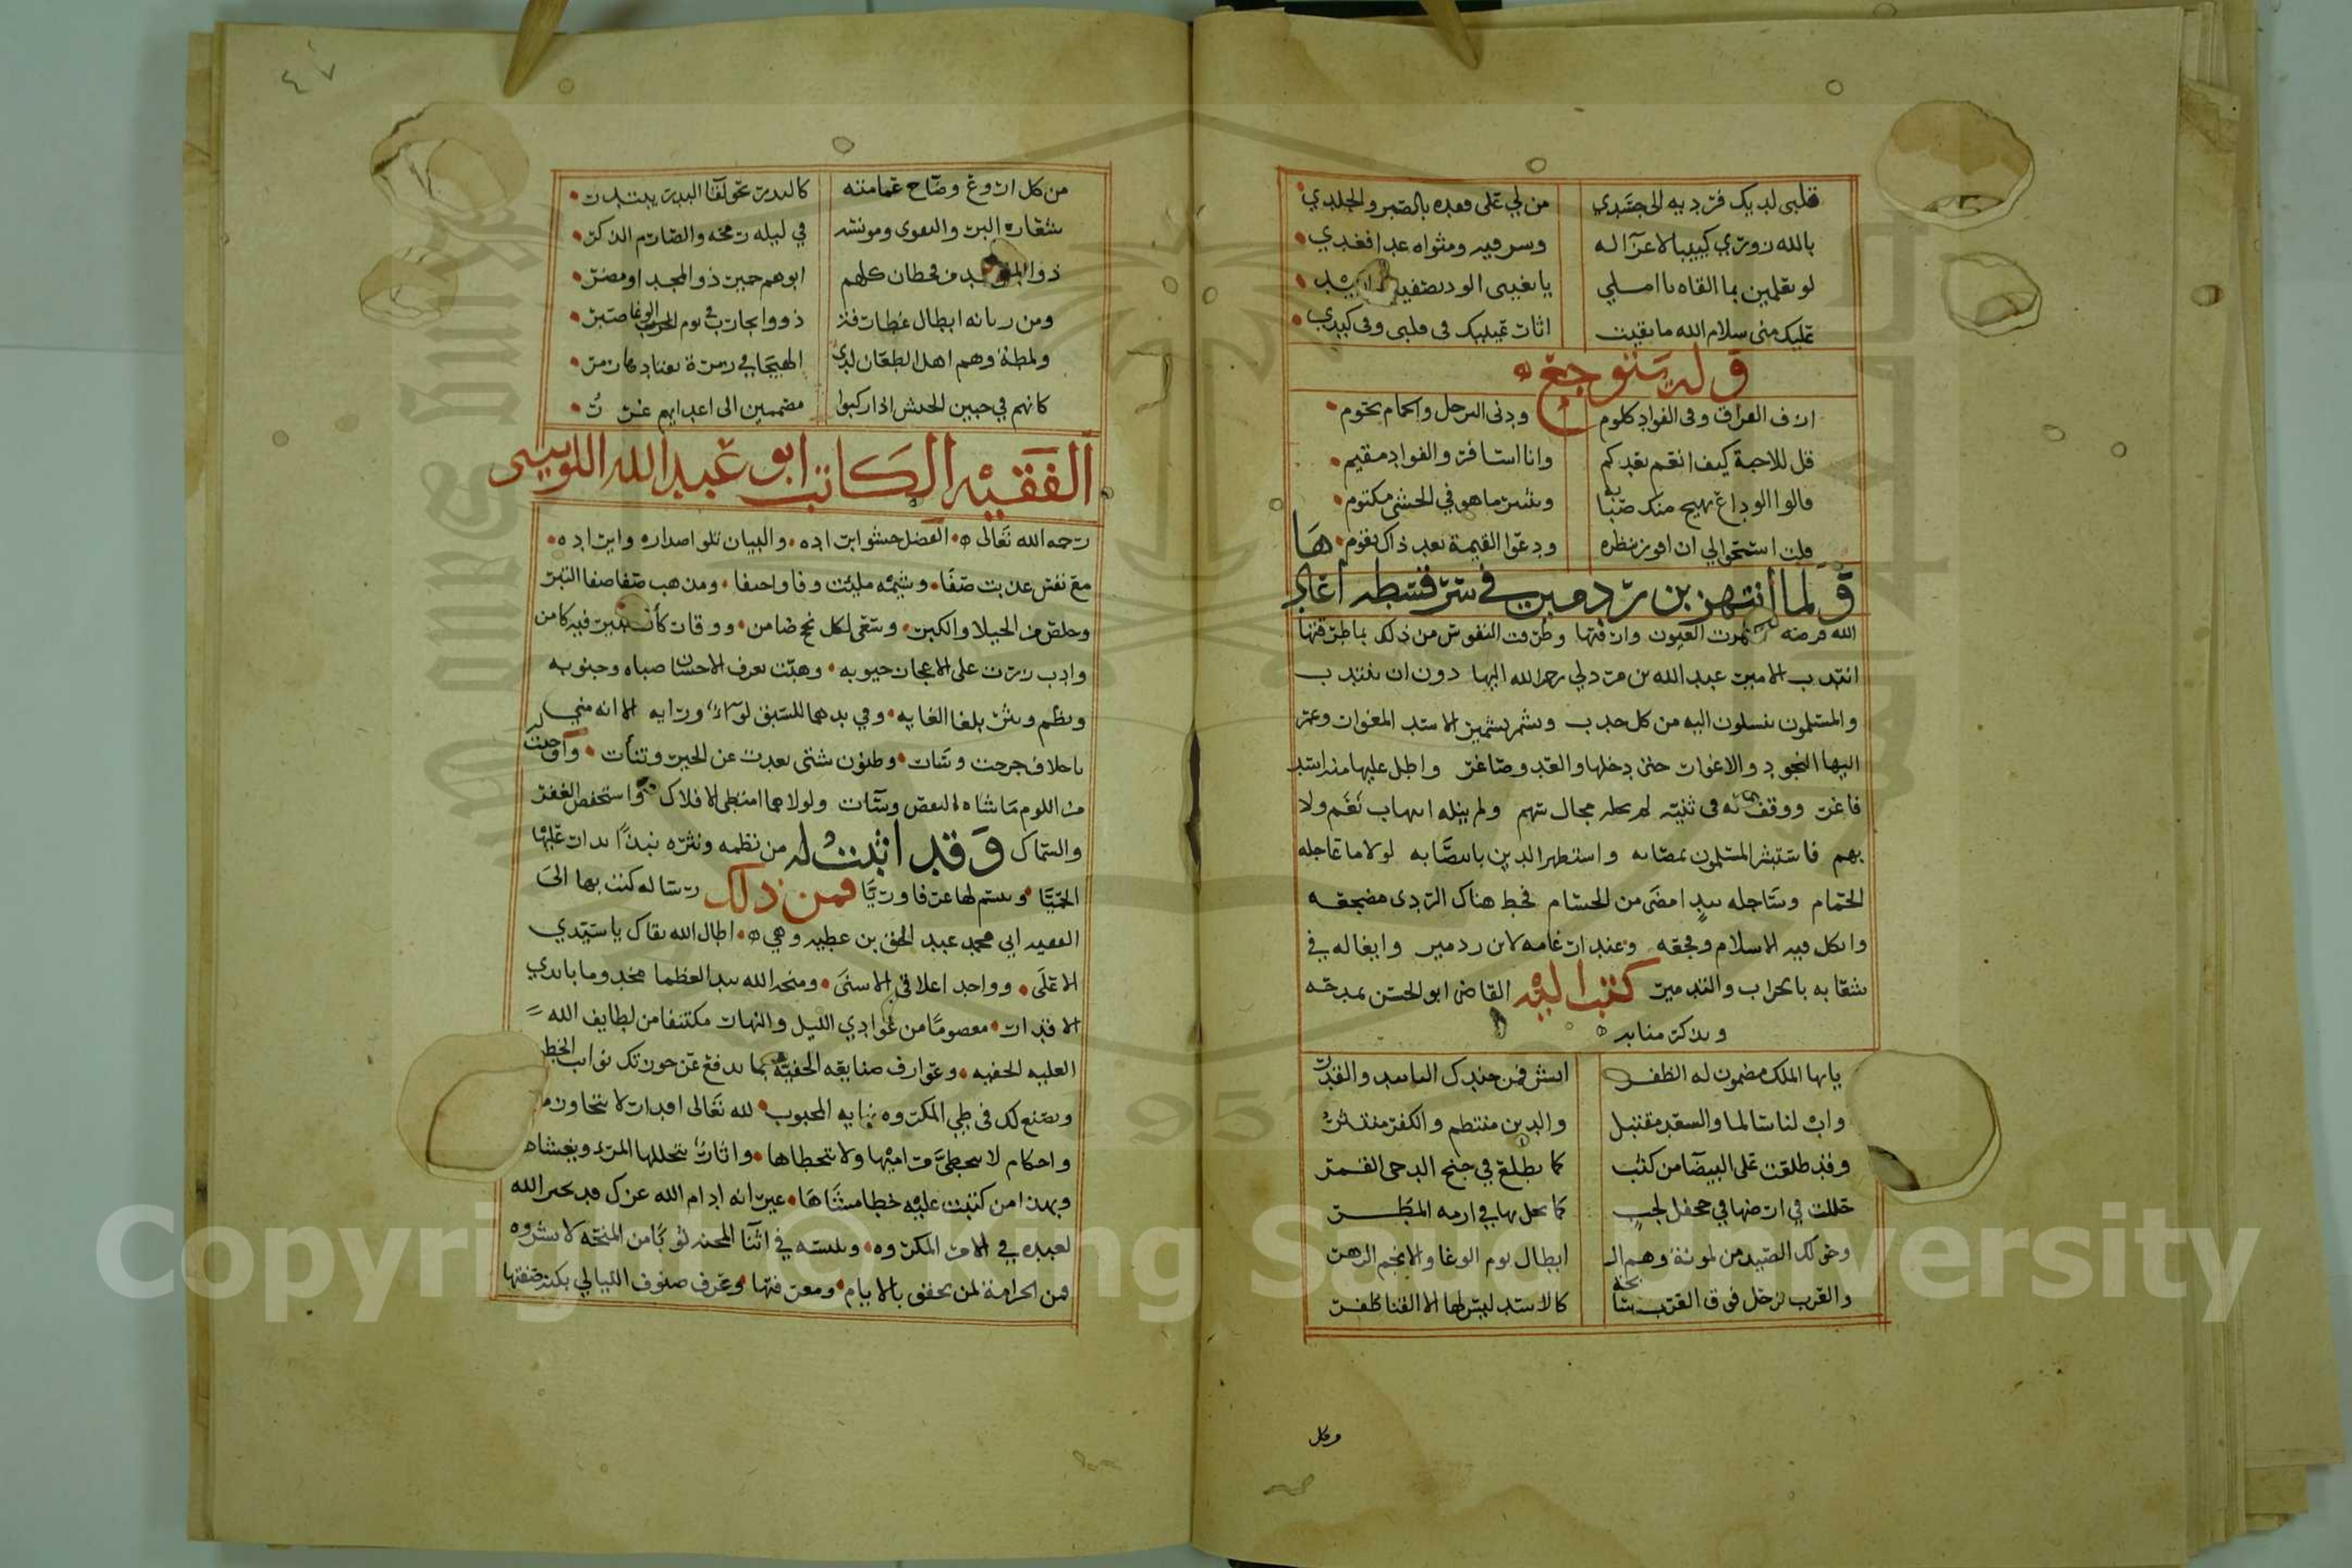 قلبي لديك فرديه الى جسدي من لي على فقده بالصبر والجلد
بالله زوري كئيبا لا عزآ له وسر فيه ومثواه غدا فغدي
لو تعلمين بما القاه يا املي
عليك مني سلام الله ما بقيت اثار عينيك في قلبي وفي كبدي
وله يتوجع
ازف الفراق وفي الفواد كلوم ودنى الترحل والحمام يحوم
قل للاحبة كيف انعم بعدكم وانا اسافر والفواد مقيم
قالوا الوداع يهيج منك صبابه ويثير ما هو في الحشى مكتوم
قلت اسمحوا لي ان افوز بنظره ودعوا القيمة بعد ذاك تقوم
ولما انتهز بن ردمير في سرقسطه اعادها
الله فرصته العيون وارقتها وطرقت النفوس من ذلك بما طرقتها
انتدب الامير عبد الله بن مزدلي رحمه الله اليها دون ان ينتدب
والمسلمون ينسلون اليه من كل حدب وشمر تشمير الاسد المغوار وعبر
اليها النجود والاغوار حتى دخلها والعد وصاغر واطل عليها منه اسد
فاغر ووقف له في ثنيته لم يحله مجال سهم ولم ينله انهاب نعم ولا
بهم فاستبشر المسلمون بمصابه واستظهر الدين بانتصابه لولا ما عاجله
الحمام وساجله بيد امضى من الحسام فخط هناك الردى مضجعه
واثكل فيه الاسلام وفجعه وعند ارغامه لابن ردمير وايغاله في
شعابه بالخراب والتدمير كتب اليه القاضي ابو الحسن يمدحه
ويذكر منابه
يايها الملك مضمون له الظفر ابشر فمن جندك التاييد والقدر
واب لنا سالما والسعد مقتبل والدين منتظم والكفر منتثر
وقد طلعت على البيضا من كثب كما يطلع في جنح الدجى القمر
حللت في ارضها في جحفل لجب كما يحل بها في ازمه المطر
وحولك الصيد من لمونة وهم ال ابطال يوم الوغا والانجم الزهر
والعرب ترفل فوق العرب سابحة كالاسد ليس لها الا القنا ظفر
وكل
٤٧
من كل اروع وضاح عمامته كالبدر نحو لقا البدر يبتدر
شعاره البر والتقوى ومونسه في ليله رمحه والصارم الذكر
ذووا من قحطان كلهم ابوهم حمير ذو المجد او مضر
ومن زناته ابطال غطارفة ذووا تجارب في يوم الوغا صبر
ولمطة وهم اهل الطعان لدى الهيجا في زمرة تعتادها زمر
كانهم في حبين الجيش اذا ركبوا مصممين الى اعدايهم غرر
الفقيه الكاتب ابو عبد الله اللوسي
رحمه الله تعالى الفضل حشو ابراده والبيان تلو اصداره وايراده
مع نفس عذبت صفا وشيمه مليت وفا واحتفا ومذهب صفا صفا التبر
وخلص من الخيلا والكبر وسعى لكل نجح ضامن ووقار كأن ثبير فيه كامن
وادب زرت على الاعجاز جيوبه وهبت بعرف الاحسان صباه وجنوبه
ونظم ونثر بلغا الغايه وفي يدهما للسبق لوآء ورايه الا انه مني
باخلاف حرجت وساءت وظنون شتى بعدت عن الخير وتنأت واوجبت له
من اللوم ما شاه البعض وسآت ولولا هما امتطى الافلاك واستخفض الغفر
والسماك وقد اثبت له من نظمه ونثره نبذا يدار عليها
الحميا ويستم لها عرفا وريا فمن ذلك رسالة كتب بها الى
الفقيه ابي محمد عبد الحق بن عطيه وهي اطال الله بقاك يا سيدي
الاعلى وواحد اعلاقي الاسنى ومنحه الله بيد العظما مخدوما بايدي
الاقدار معصوما من عوادي الليل والنهار مكتنفا من لطايف الله
العليه الخفيه وعوارف صنايعه الحفيه بما يدفع عن حوزتك نواب الخطوب
ويصنع لك في طي المكروه نهايه المحبوب لله تعالى اقدار لا تتجاوز مداها
واحكام لا تخطئ مراميها ولا تتخطاها واثار تتحللها المرء ويغشاها
وبهذا من كتبت عليه خطا مشاها غير انه ادام الله عزك قد يخير الله
لعبده في الامر المكروه ويلبسه في اثنا المحنه ثوبا من المنحه لا يسروه
فمن الحزامة لمن تحقق بالايام ومعرفتها وعرف صنوف الليالي بكنه صفتها